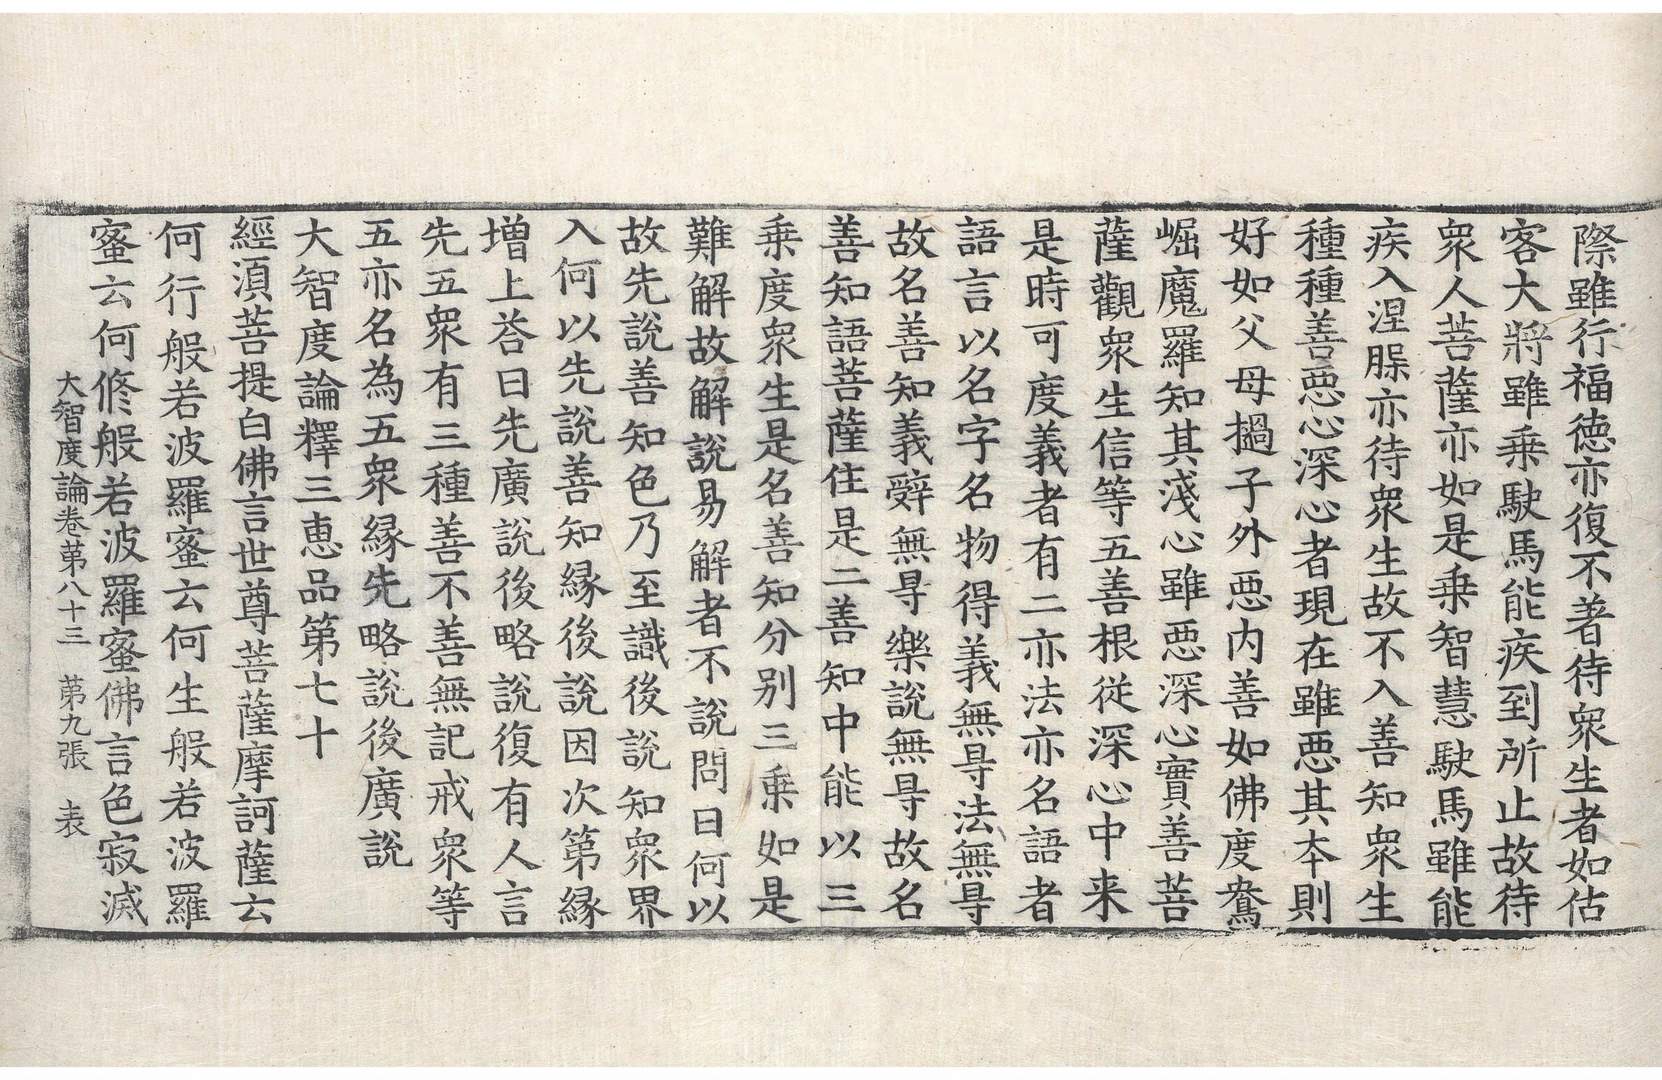 際雖行福德亦復不著待衆生者如估
客大將雖乗駛馬能疾到所止故待
衆人菩薩亦如是乗智慧駛馬雖能
疾入涅㮈亦待衆生故不入善知衆生
種種善惡心深心者現在雖惡其本則
好如父母撾子外惡内善如佛度鴦
崛魔羅知其淺心雖惡深心實善菩
薩觀衆生信等五善根從深心中来
是時可度義者有二亦法亦名語者
語言以名字名物得義無㝵法無㝵
故名善知義辤無㝵樂說無㝵故名
善知語菩薩住是二善知中能以三
乗度衆生是名善知分別三乗如是
難解故解說易解者不說問曰何以
故先說善知色乃至識後說知衆界
入何以先說善知縁後說因次第縁
増上荅曰先廣說後略說復有人言
先五衆有三種善不善無記戒衆等
五亦名為五衆縁先略說後廣說
大智度論釋三恵品第七十
經湏菩提白佛言世尊菩薩摩訶薩云
何行般若波羅蜜云何生般若波羅
蜜云何修般若波羅蜜佛言色寂滅
大智度論卷第八十三　第九張　表